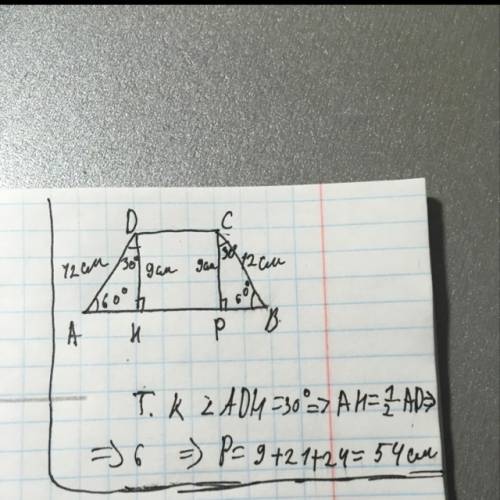 D C
12см 30° 9см 9см 30° 12см
60° 60°
A H P B
Т. к ∠ADH=30° => AH=½AD=>
=> 6 => P= 9+21+24= 54см